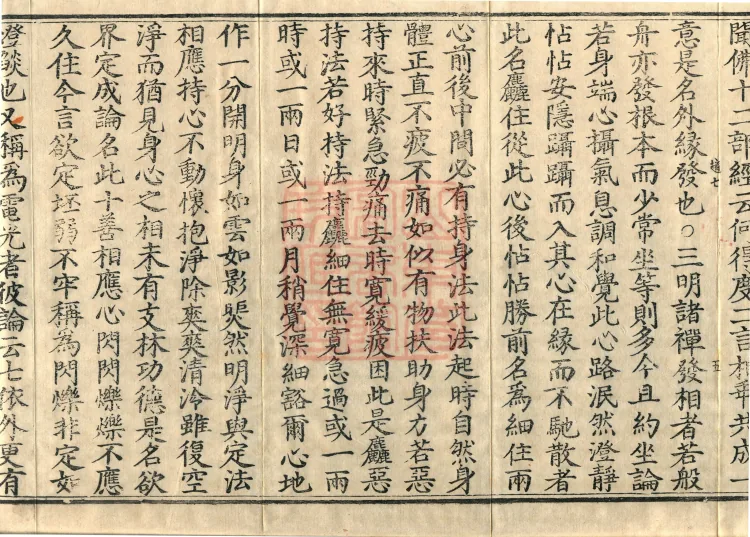 聞備十二部經云何得度二言相乖共成一
意是名外緣發也〇三明諸禪發相者若般
七
五
舟亦發根本而少常坐等則多今且約坐論
若身端心攝氣息調和覺此心路泯然澄靜
怗怗安隱躡躡而入其心在緣而不馳散者
此名麤住從此心後怗怗勝前名為細住兩
心前後中間必有持身法此法起時自然身
體正直不疲不痛如似有物扶助身力若惡
持來時緊急勁痛去時寬緩疲困此是麤惡
持法若好持法持麤細住無寬急過或一兩
時或一兩日或一兩月稍覺深細豁爾心地
作一分開明身如雲如影煚然明淨與定法
相應持心不動懷抱淨除爽爽清冷雖復空
淨而猶見身心之相未有支林功德是名欲
界定成論名此十善相應心閃閃爍爍不應
久住今言欲定坯弱不牢稱為閃爍非定如
燈燄也又稱為電光者彼論云七依外更有